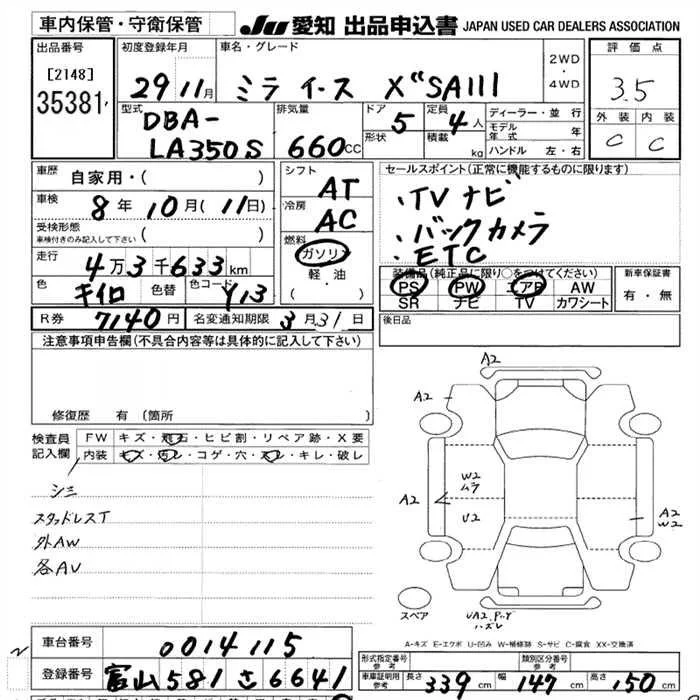 車内保管・守衛保管
JU 愛知 出品申込書 JAPAN USED CAR DEALERS ASSOCIATION
出品番号
[2148]
35381
初度登録年月
29 11月
車名・グレード
ミラ イース X"SAIII
2WD
・
4WD
評価点
3.5
外装 内装
C C
型式
DBA-
LA350S
排気量
660cc
ドア
5
形状
定員
4人
積載
kg
ディーラー・並行
モデル年式 年
ハンドル 左・右
車歴
自家用・( )
車検
8年10月(11日)
受検形態
車検付きのみ記入して下さい ( )
走行
4万3千633km
色
キイロ
色替
色コード
Y13
シフト
AT
冷房
AC
燃料
ガソリン
軽油
( ・ )
セールスポイント(正常に機能するものに限ります)
・TVナビ
・バックカメラ
・ETC
装備品(純正品に限り○をつけてください)
PS PW エアB AW
SR ナビ TV カワシート
新車保証書
有・無
R券 7140円 名変通知期限 3月31日
後日品
注意事項申告欄(不具合内容等は具体的に記入して下さい)
修復歴 有(箇所 )
検査員
記入欄
FW キズ・飛石・ヒビ割・リペア跡・X要
内装 キズ・汚レ・コゲ・穴・スレ・キレ・破レ
シミ
スタッドレスT
外AW
各AV
A2
A2
A2
W2
ムラ
U2
A2
W2
スペア
UA2.
ハズレ
A-キズ E-エクボ U-凹み W-補修跡 S-サビ C-腐食 XX-交換済
車台番号 0014115
登録番号 富山581さ6641
型式指定番号
参考
類別区分番号
参考
車庫証明用
参考
長さ 339cm 幅 147cm 高さ 150cm